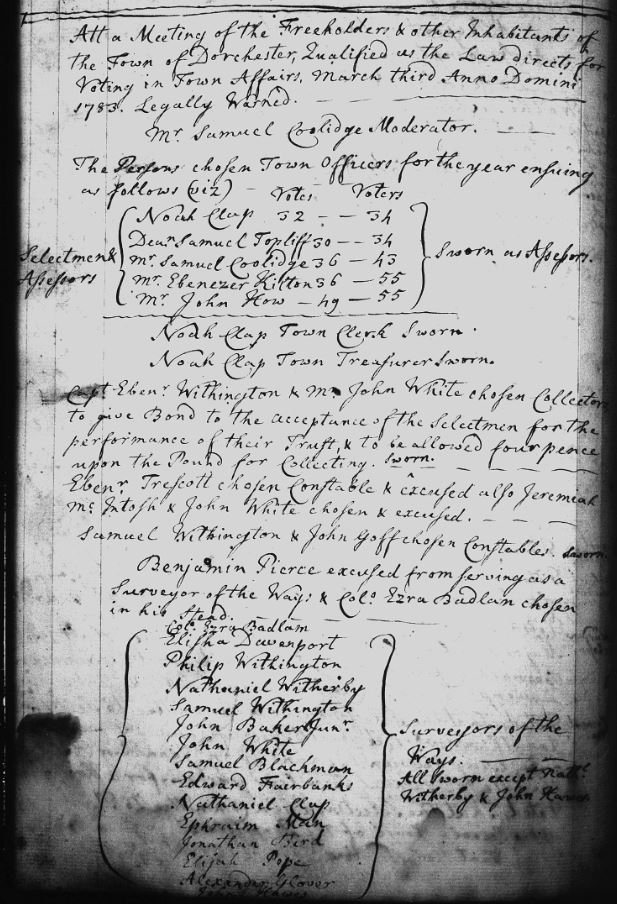 Att a Meeting of the Freeholders & other Inhabitants of
the Town of Dorchester, Qualified as the Law directs for
Voting in Town Affairs, March third Anno Domini
1783. Legally Warned.
Mr. Samuel Coolidge Moderator.
The Persons chosen Town Officers for the year ensuing
as follows (viz) - Votes Voters
Noah Clap 32 - - 34
Deacn Samuel Topliff 30 - - 34
Mr. Samuel Coolidge 36 - 43
Mr. Ebenezer Kilton 36 - 55
Mr. John How - 49 - 55
Selectmen &
Assessors
Sworn as Assessors.
Noah Clap Town Clerk Sworn.
Noah Clap Town Treasurer Sworn.
Capt. Ebenr. Withington & Mr. John White chosen Collectors
to give Bond to the acceptance of the Selectmen for the
performance of their Trust, & to be allowed four pence
upon the Pound for Collecting. Sworn.
Ebenr. Trescott chosen Constable & excused also Jeremiah
Mc Intosh & John White chosen & excused.
Samuel Withington & John Goff chosen Constables. Sworn
Benjamin Pierce excused from serving as a
Surveyor of the Ways & Colo. Ezra Badlam chosen
in his Stead.
Colo. Ezra Badlam
Elisha Davenport
Philip Withington
Nathaniel Witherby
Samuel Withington
John Baker Junr.
John White
Samuel Blackman
Edward Fairbanks
Nathaniel Clap
Ephraim Man
Jonathan Bird
Elijah Pope
Alexander Glover
John Hawes
Surveyors of the
Ways.
All Sworn except Nathl.
Witherby & John Hawes